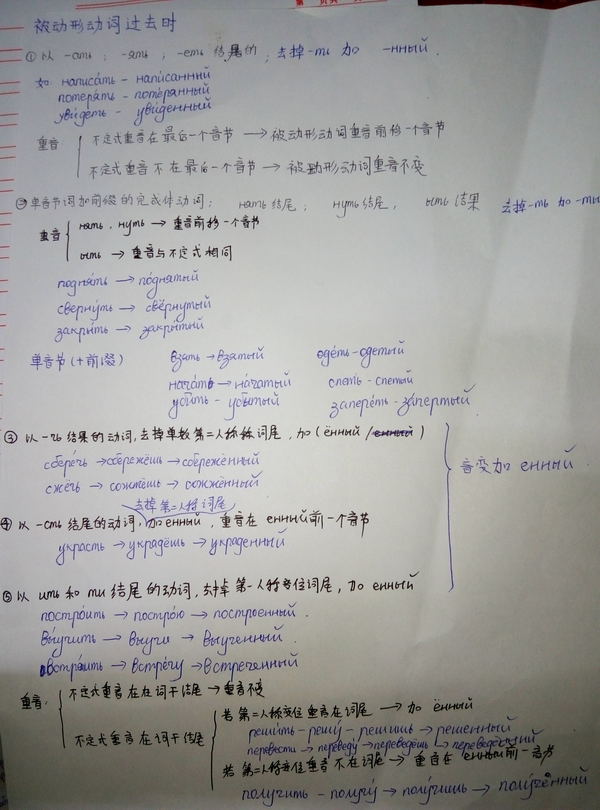 被动形动词过去时
① 以 -ать; -ять; -еть 结尾的, 去掉-ть 加 -нный.
如: написа́ть - напи́санный
потеря́ть - поте́рянный
уви́деть - уви́денный
重音 不定式重音在最后一个音节 → 被动形动词重音前移一个音节
不定式重音不在最后一个音节 → 被动形动词重音不变
② 单音节词加前缀的完成体动词; нять 结尾; нуть 结尾, ыть 结果 去掉-ть 加 -ты
重音 нять, нуть → 重音前移一个音节
ыть → 重音与不定式相同
подня́ть → по́днятый
сверну́ть → свёрнутый
закры́ть → закры́тый
单音节(+前缀) взять → взятый оде́ть - оде́тый
нача́ть → на́чатый спеть - спетый
уби́ть - уби́тый запере́ть - за́пертый
③ 以 -чь 结果的动词, 去掉单数第二人称词尾, 加 (ённый / енный)
сбере́чь → сбережёшь → сбережённый
сжечь → сожжёшь → сожжённый
音变加 енный
去掉第二人称词尾
④ 以 -сть 结尾的动词, 加 енный, 重音在 енный 前一个音节
укра́сть → украдёшь → укра́денный
⑤ 以 ить 和 ти 结尾的动词, 去掉第一人称变位词尾, 加 енный
постро́ить → постро́ю → постро́енный.
вы́учить → выучу → выученный.
встре́тить → встре́чу → встре́ченный
重音: 不定式重音在词干结尾 → 重音不变
不定式重音在词干结尾 若第二人称变位重音在词尾 → 加 ённый
реши́ть - решу́ - решишь → решённый
перевести → переведу́ → переведёшь → переведённый
若第二人称变位重音不在词尾 → 重音在 енный 前一音节
получи́ть - получу́ → полу́чишь → полу́ченный